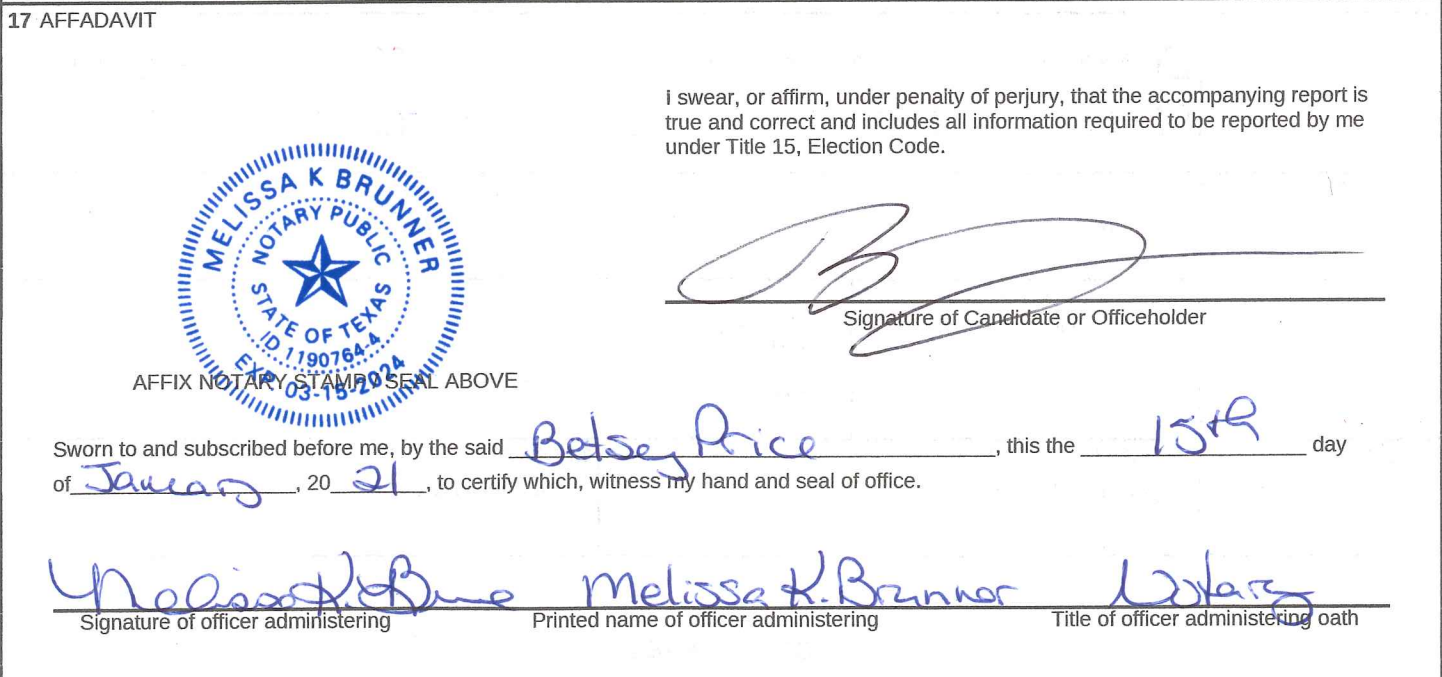 17 AFFADAVIT
I swear, or affirm, under penalty of perjury, that the accompanying report is
true and correct and includes all information required to be reported by me
under Title 15, Election Code.
MELISSA K BRUNNER
NOTARY PUBLIC
STATE OF TEXAS
ID 1190764-4
EXP 03-15-2024
Signature of Candidate or Officeholder
AFFIX NOTARY STAMP / SEAL ABOVE
Sworn to and subscribed before me, by the said Betsey Price, this the 15th day
of January, 20 21, to certify which, witness my hand and seal of office.
Melissa K. Brunner Melissa K. Brunner Notary
Signature of officer administering Printed name of officer administering Title of officer administering oath